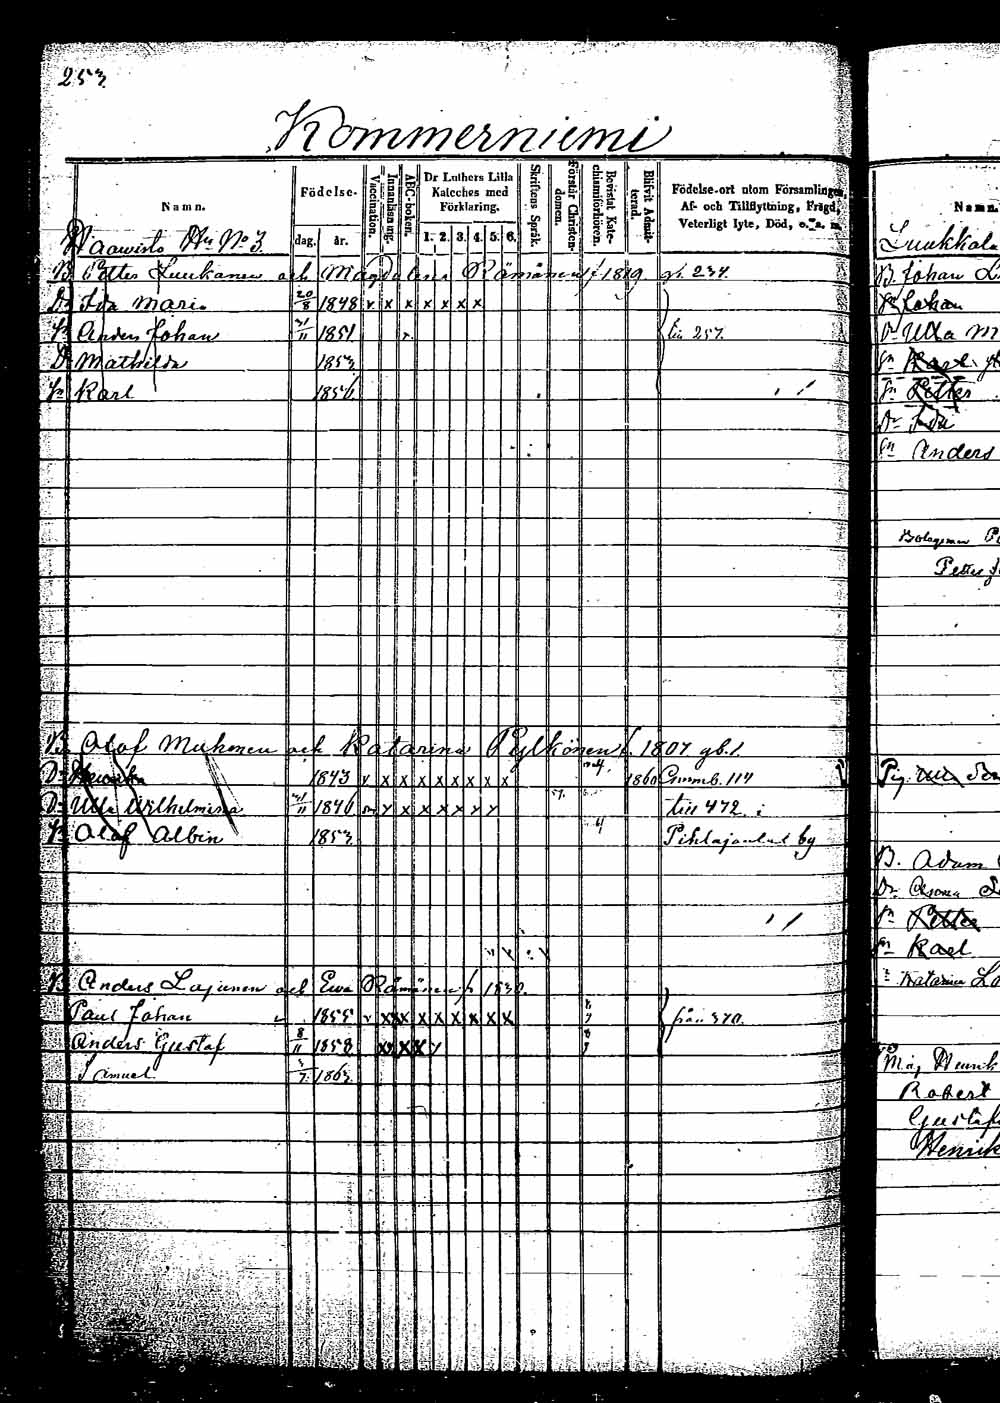 253
Kommerniemi
Namn.
Födelse-
dag.
år.
Vaccination.
Innanläsning.
ABC-boken.
Dr Luthers Lilla
Kateches med
Förklaring.
1. 2. 3. 4. 5. 6.
Skriftens Språk.
Förstår Christen-
domen.
Bevistat Kate-
chismiförhören.
Blifvit Admit-
terad.
Födelse-ort utom Församlingen,
Af- och Tillflyttning, Frägd,
Veterligt lyte, Död, o. s. m.
Waawisto Hn No 3.
B. Petter Luukanen och Magdalena Rämänen f 1819. gb. 234.
Dr Ida Maria 20/8 1848 v x x x x x x x
Sn Anders Johan 21/11 1851 till 257.
Dr Mathilda 1853
Sn Karl 1856
B. Olof Muhonen och Katarina Pylkönen f. 1807. gb. 1.
Dr Henrika 1843 v x x x x x x x x 1860 Commb. 114
Dr Ulla Wilhelmina 21/11 1846 till 472.
Sn Olof Albin 1853 by
B. Anders Lajunen och Ewa Rämänen f. 1830.
Paul Johan 1855 v x x x x x x x x från 370.
Anders Gustaf 8/11 1858
Samuel 3/7 1863
Namn.
Luukkala
B Johan L
Sn Johan
Dr Ulla M
Sn Karl
Sn Petter
Dr Ida
Sn Anders
Bolagsman
Petter
Pig.
B. Adam
Dr
Sn Petter
Sn Karl
Katarina La
Måg Henrik
Robert
Gustaf
Henrik